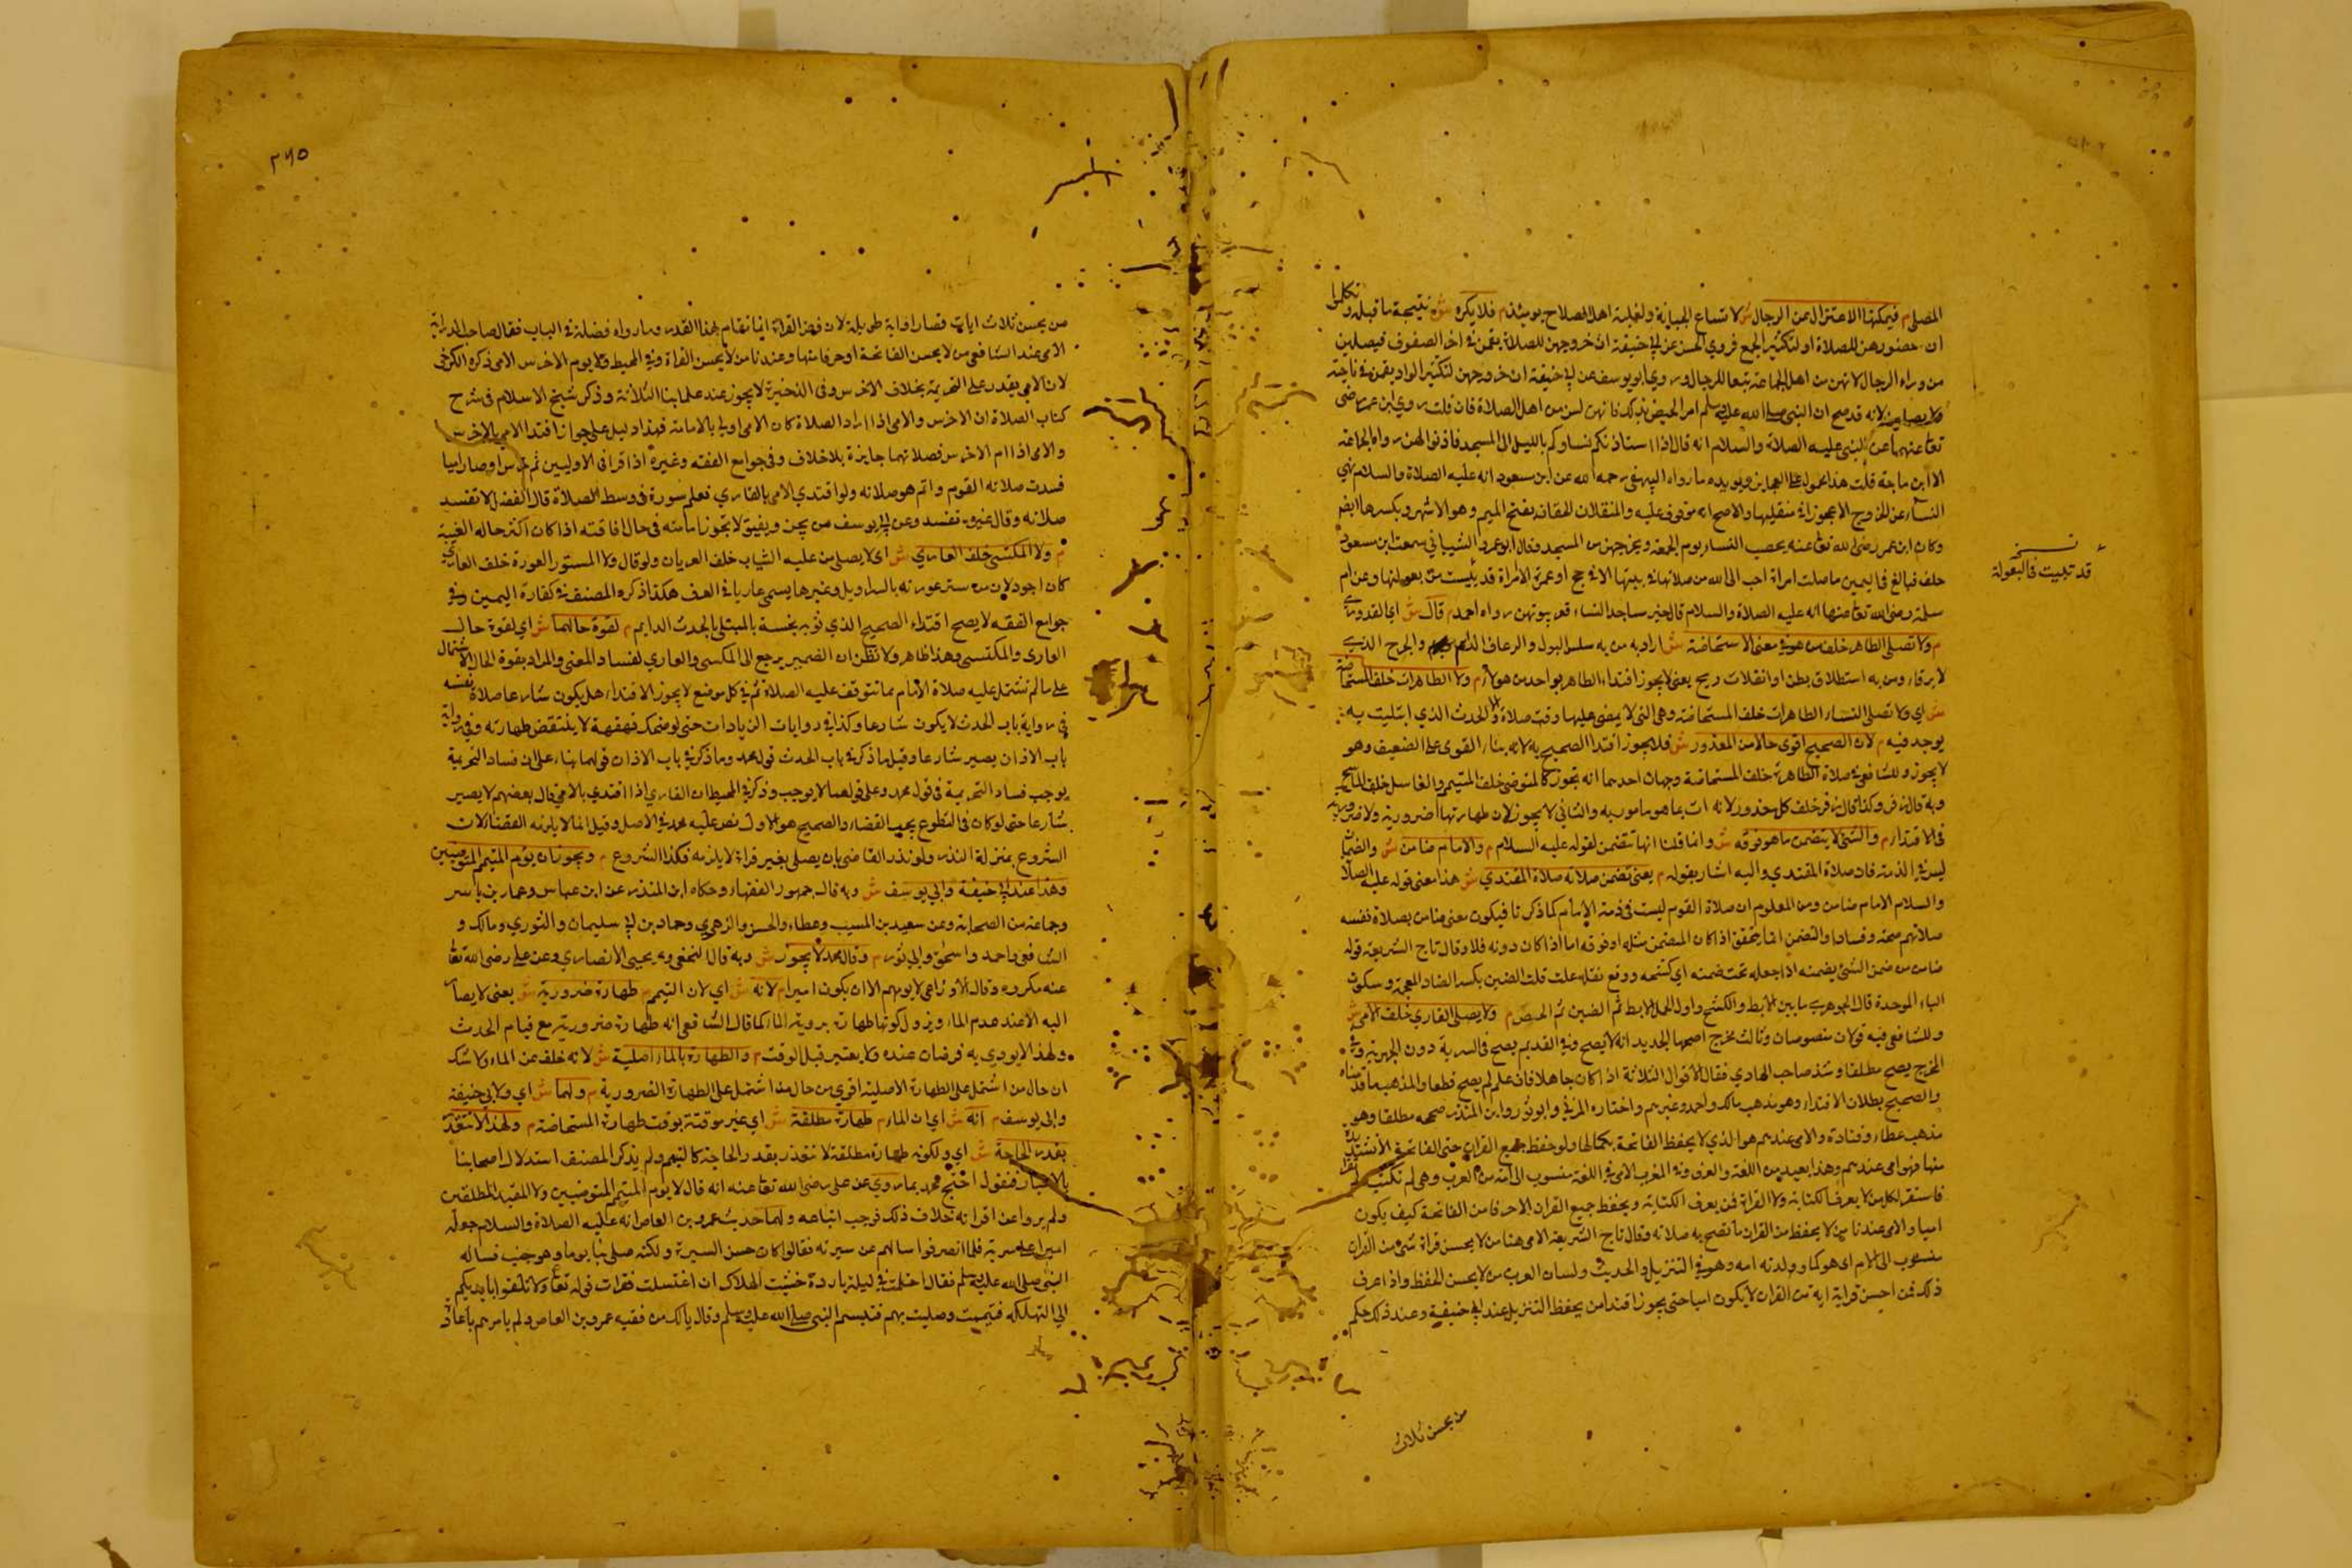 المصلى م فيمكنها الاعتزال عن الرجال ش لاتساع الجبانة ولغلبة اهل الصلاح يومئذ م فلا يكره ش نتيجة ما قبله وتكلموا
ان حضورهن للصلاة او لتكثير الجمع فروي الحسن عن ابي حنيفة ان خروجهن للصلاة يقمن في اخر الصفوف فيصلين
من وراء الرجال لانهن من اهل الجماعة تبعا للرجال وروي ابو يوسف عن ابي حنيفة ان خروجهن لتكثير السواد يقمن في ناحية
ولا يصلين لانه قد صح ان النبي صلى الله عليه وسلم امر الحيض بذلك فانهن لسن من اهل الصلاة فان قلت روي ابن عمر رضى
تعا عنهما عن النبي عليه الصلاة والسلام انه قال اذا استاذنكم نساؤكم بالليل الى المسجد فاذنوا لهن رواه الجماعة
الا ابن ماجة قلت هذا محمول على العجايز ويويده ما رواه البيهقي رحمه الله عن ابن مسعود انه عليه الصلاة والسلام نهي
النساء عن الخروج الا عجوزا في منقليها والاصح انه موقوف عليه والمنقلان الخفان بفتح الميم وهو الاشهر وبكسرها ايضا
وكان ابن عمر رضى الله تعا عنه يحصب النساء يوم الجمعة ويخرجهن من المسجد فقال ابو عمرو الشيباني سمعت ابن مسعود
حلف فبالغ في اليمين ما صلت امراة احب الى الله من صلاتها في بيتها الا في حج او عمرة الا امراة قد يئست من بعولتها وعن ام
سلمة رضى الله تعا عنها انه عليه الصلاة والسلام قال خير مساجد النساء قعر بيوتهن رواه احمد م قال ش اي القدوري
م ولا تصلي الطاهر خلف من هو في معنى الاستحاضة ش اراد به من به سلس البول والرعاف الدائم والجرح الذي
لا يرقاء ومن به استطلاق بطن او انفلات ريح يعنى لا يجوز اقتداء الطاهر بواحد من هولاء م ولا الطاهرات خلف المستحاضة
ش اي ولا تصلي النساء الطاهرات خلف المستحاضة وهي التي لا يمضي عليها وقت صلاة الا والحدث الذي ابتليت به
يوجد فيه م لان الصحيح اقوى حالا من المعذور ش فلا يجوز اقتداء الصحيح به لانه بناء القوى على الضعيف وهو
لا يجوز وللشافعي في صلاة الطاهرة خلف المستحاضة وجهان احدهما انه تجوز كالمتوضى خلف المتيمم والغاسل خلف الماسح
وبه قال زفر وكذا قال زفر خلف كل معذور لانه ات بما هو مامور به والثاني لا يجوز لان طهارتها ضرورية ولا ضرورة
في الاقتداء م والشئ لا يتضمن ما هو فوقه ش وانما قلنا انها تتضمن لقوله عليه السلام م والامام ضامن ش والضمان
ليس في الذمة فان صلاة المقتدي واليه اشار بقوله م يعنى تضمن صلاته صلاة المقتدي ش هذا معنى قوله عليه الصلاة
والسلام الامام ضامن ومن المعلوم ان صلاة القوم ليست في ذمة الامام كما ذكرنا فيكون معنى ضامن بصلاة نفسه
صلاتهم صحة وفسادا والتضمن انما يتحقق اذا كان المتضمن مثله او فوقه اما اذا كان دونه فلا وقال تاج الشريعة قوله
ضامن من ضمن الشئ يضمنه اذا جعله تحت ضمنه اي كشحه ووقع نقله علت قلت الضبن بكسر الضاد المعجمة وسكون
الباء الموحدة قال الجوهري ما بين الابط والكشح واول الحمل الابط ثم الضبن ثم الحضن م ولا يصلي القاري خلف الامي ش
وللشافعي فيه قولان منصوصان وثالث مخرج اصحها الجديد انه لا يصح وفي القديم يصح في السرية دون الجهرية وفي
المخرج يصح مطلقا وشذ صاحب الحاوي فقال الاقوال الثلاثة اذا كان جاهلا فان علم لم يصح قطعا والمذهب ما قدمناه
والصحيح بطلان الاقتداء وهو مذهب مالك واحمد وغيرهم واختاره المزني وابو ثور وابن المنذر صحه مطلقا وهو
مذهب عطاء وقتادة والامي عندهم هو الذي لا يحفظ الفاتحة بكمالها ولو حفظ جميع القران حتى الفاتحة الا تشديدة
منها فهو امي عندهم وهذا بعيد من اللغة والعرف وفي المغرب الامي في اللغة منسوب الى امة من العرب وهي لم تكتب
فاستقر لكل من لا يعرف الكتابة ولا القراءة فمن يعرف الكتابة ويحفظ جميع القران الا حرفا من الفاتحة كيف يكون
اميا والامي عندنا من لا يحفظ من القران ما تصح به صلاته وقال تاج الشريعة الامي هنا من لا يحسن قراة شئ من القران
منسوب الى الام اي هو كما وولدته امه وهو في التنزيل والحديث ولسان العرب من لا يحسن الحفظ واذا عرف
ذلك فمن احسن قراية اية من القران لا يكون اميا حتى يجوز اقتدا من يحفظ التنزيل عند ابي حنيفة وعند ذلك حكم
قد تبليت في البعولة
من يحسن ثلاث
٢٦٥
من يحسن ثلاث ايات قصار او اية طويلة لان فرض القراة انما تقام بهذا القدر وما رواه فضلة في الباب فقال صاحب الدراية
الامي عند الشافعي من لا يحسن الفاتحة او حرفا منها وعندنا من لا يحسن القراة وفي المحيط ولا يوم الاخرس الامي ذكره الكرخى
لان الامي يقدر على التحريمة بخلاف الاخرس وفي الذخيرة لا يجوز عند علمائنا الثلاثة وذكر شيخ الاسلام في شرح
كتاب الصلاة ان الاخرس والامي اذا اراد الصلاة كان الامي اولي بالامامة فهذا دليل على جواز اقتدا الامي بالاخرس
والامي اذا ام الاخرس فصلاتهما جايزة بلا خلاف وفي جوامع الفقه وغيره اذا قرا في الاوليين ثم خرس او صار اميا
فسدت صلاته القوم واتم هو صلاته ولو اقتدي الامي بالقاري فعلم سورة في وسط الصلاة قال الفضلي لا تفسد
صلاته وقال غيره تفسد وعن ابي يوسف من يجن ويفيق لا تجوز امامته في حال افاقته اذا كان اكثر حاله الغيبة
م ولا المكتسى خلف العاري ش اى لا يصلى من عليه الثياب خلف العريان ولو قال ولا المستور العورة خلف العاري
كان اجود لان من ستر عورته بالسراويل وغيرها يسمى عاريا في العرف هكذا ذكره المصنف في كفارة اليمين وفي
جوامع الفقه لا يصح اقتداء الصحيح الذي ثوبه نجسة بالمبتلى بالحدث الدايم م لقوة حالهما ش اي لقوة حال
العارى والمكتسى وهذا ظاهر ولا تظن ان الضمير يرجع الى المكتسى والعاري لفساد المعنى والمراد بقوة الحال الاشتمال
على ما لم تشتمل عليه صلاة الامام بما تتوقف عليه الصلاة ثم في كل موضع لا يجوز الاقتداء هل يكون شارعا صلاة نفسه
في رواية باب الحدث لا يكون شارعا وكذا في روايات الزيادات حتى لو ضحك قهقهة لا ينتقض طهارته وفي رواية
باب الاذان يصير شارعا وقيل ما ذكر في باب الحدث قول محمد وما ذكر في باب الاذان قولهما بناء على ان فساد التحريمة
يوجب فساد التحريمة في قول محمد وعلى قولهما لا يوجب وذكر في المحيط ان القاري اذا اقتدي بالامي قال بعضهم لا يصير
شارعا حتى لو كان في التطوع يجب القضاء والصحيح هو الاول نص عليه محمد في الاصل وقيل انما لا يلزمه القضاء لان
الشروع بمنزلة النذر ولو نذر القاضى بان يصلى بغير قراة لا يلزمه فكذا الشروع م ويجوز ان يؤم المتيمم المتوضيين
وهذا عند ابي حنيفة وابي يوسف ش وبه قال جمهور الفقهاء وحكاه ابن المنذر عن ابن عباس وعمار بن ياسر
وجماعة من الصحابة وعن سعيد بن المسيب وعطاء والحسن والزهري وحماد بن ابي سليمان والثوري ومالك و
الشافعى واحمد واسحق وابي ثور م وقال محمد لا يجوز ش وبه قال النخعى ويحيى الانصاري وعن على رضى الله تعا
عنه مكروه وقال الاوزاعي لا يومهم الا ان يكون اميرا م لانه ش اي لان التيمم م طهارة ضرورية ش يعنى لا يصار
اليه الا عند عدم الماء ويزول كونها طهارة بروية الماء كما قال الشافعى انه طهارة ضرورية مع قيام الحدث
ولهذا لا يودي به فرضان عنده ولا يعتبر قبل الوقت م والطهارة بالماء اصلية ش لانه خلف عن الماء ولا شك
ان حال من اشتمل على الطهارة الاصلية اقوي من حال من اشتمل على الطهارة الضرورية م ولهما ش اي ولابي حنيفة
وابى يوسف م انه ش اي ان الماء م طهارة مطلقة ش اي غير موقتة بوقت طهارة المستحاضة م ولهذا لا تتقدر
بقدر الحاجة ش اي ولكونه طهارة مطلقة لا تتقدر بقدر الحاجة كالتيمم ولم يذكر المصنف استدلال اصحابنا
بالاخبار فنقول احتج محمد بما روي عن على رضى الله تعا عنه انه قال لا يوم المتيمم المتوضيين ولا المقيد المطلقين
ولم يروا عن اقرانه خلاف ذلك فوجب اتباعه ولهما حديث عمرو بن العاص انه عليه الصلاة والسلام جعله
اميرا على سرية فلما انصرفوا سالهم عن سيرته فقالوا كان حسن السيرة ولكنه صلى بنا يوما وهو جنب فساله
النبي صلى الله عليه وسلم فقال احتلمت في ليلة باردة خشيت الهلاك ان اغتسلت فقرات قوله تعا ولا تلقوا بايديكم
الى التهلكة فتيممت وصليت بهم فتبسم النبي صلى الله عليه وسلم وقال يالك من فقيه عمرو بن العاص ولم يامرهم باعادة